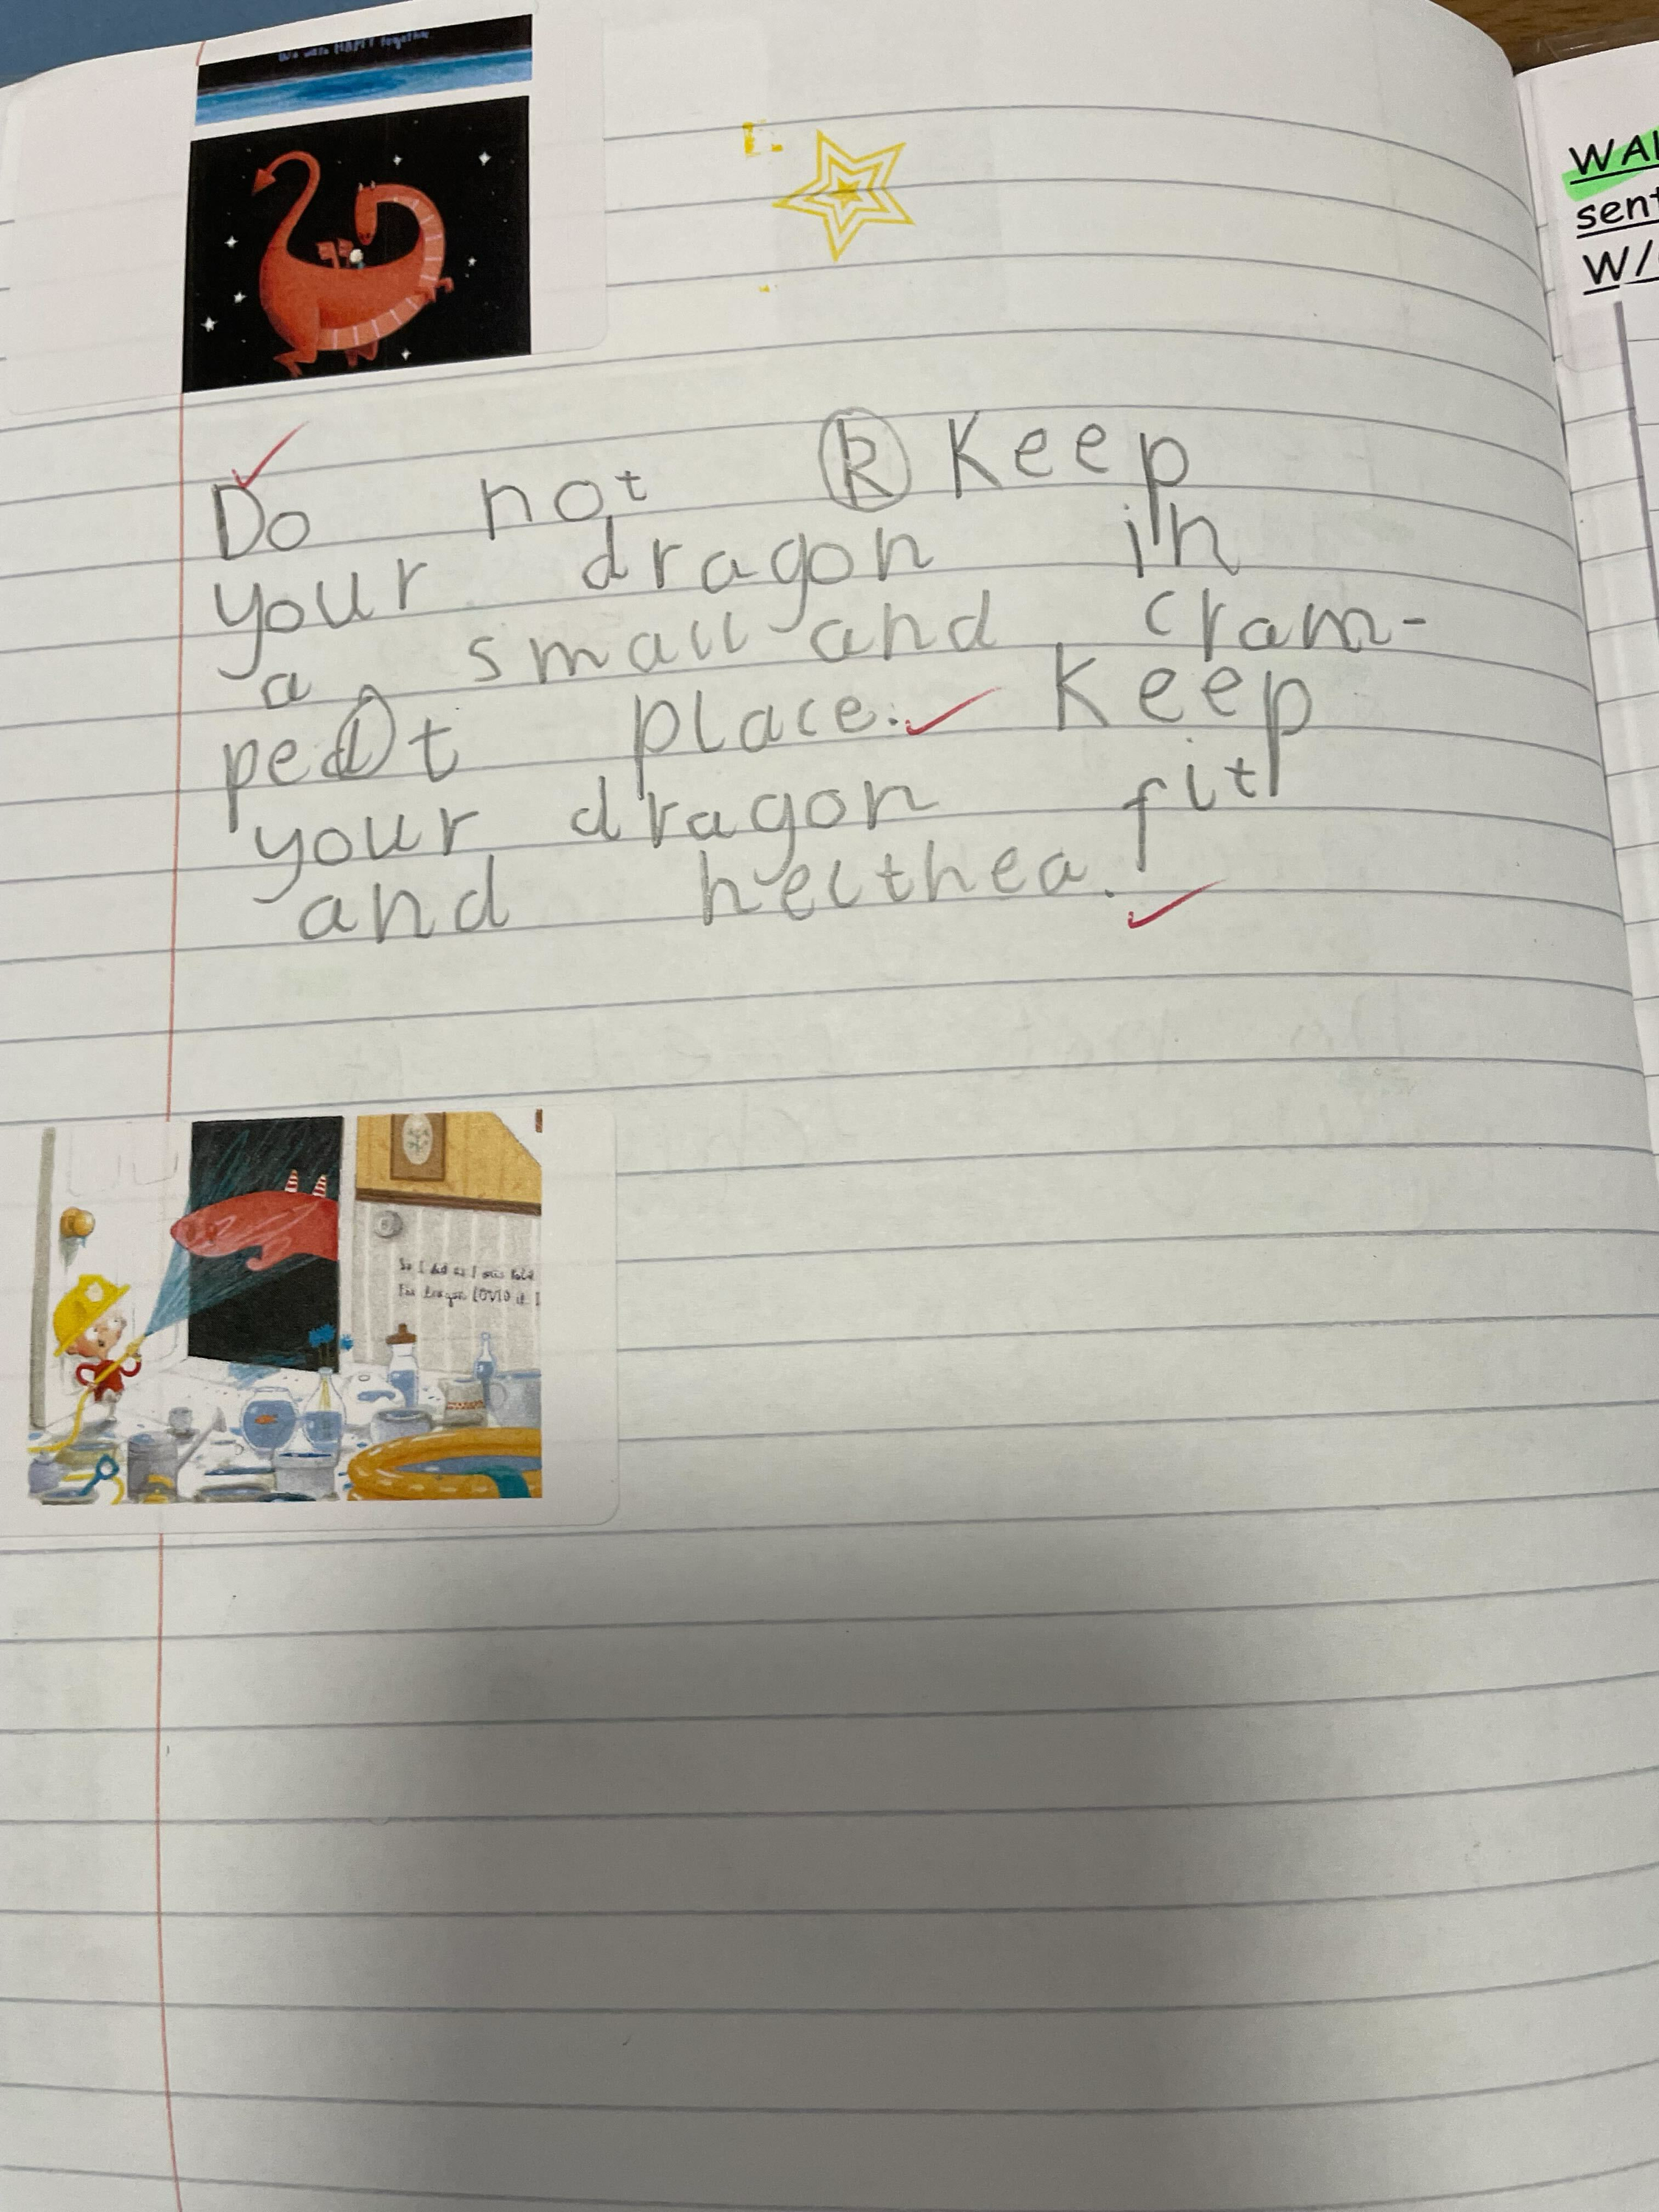 We were HAPPY together.
WAL
sent
W/
Do not k Keep
your dragon in
a small and cram-
pedlt place. Keep
your dragon fit
and helthea.
So I did as I was told
The dragon LOVED it I